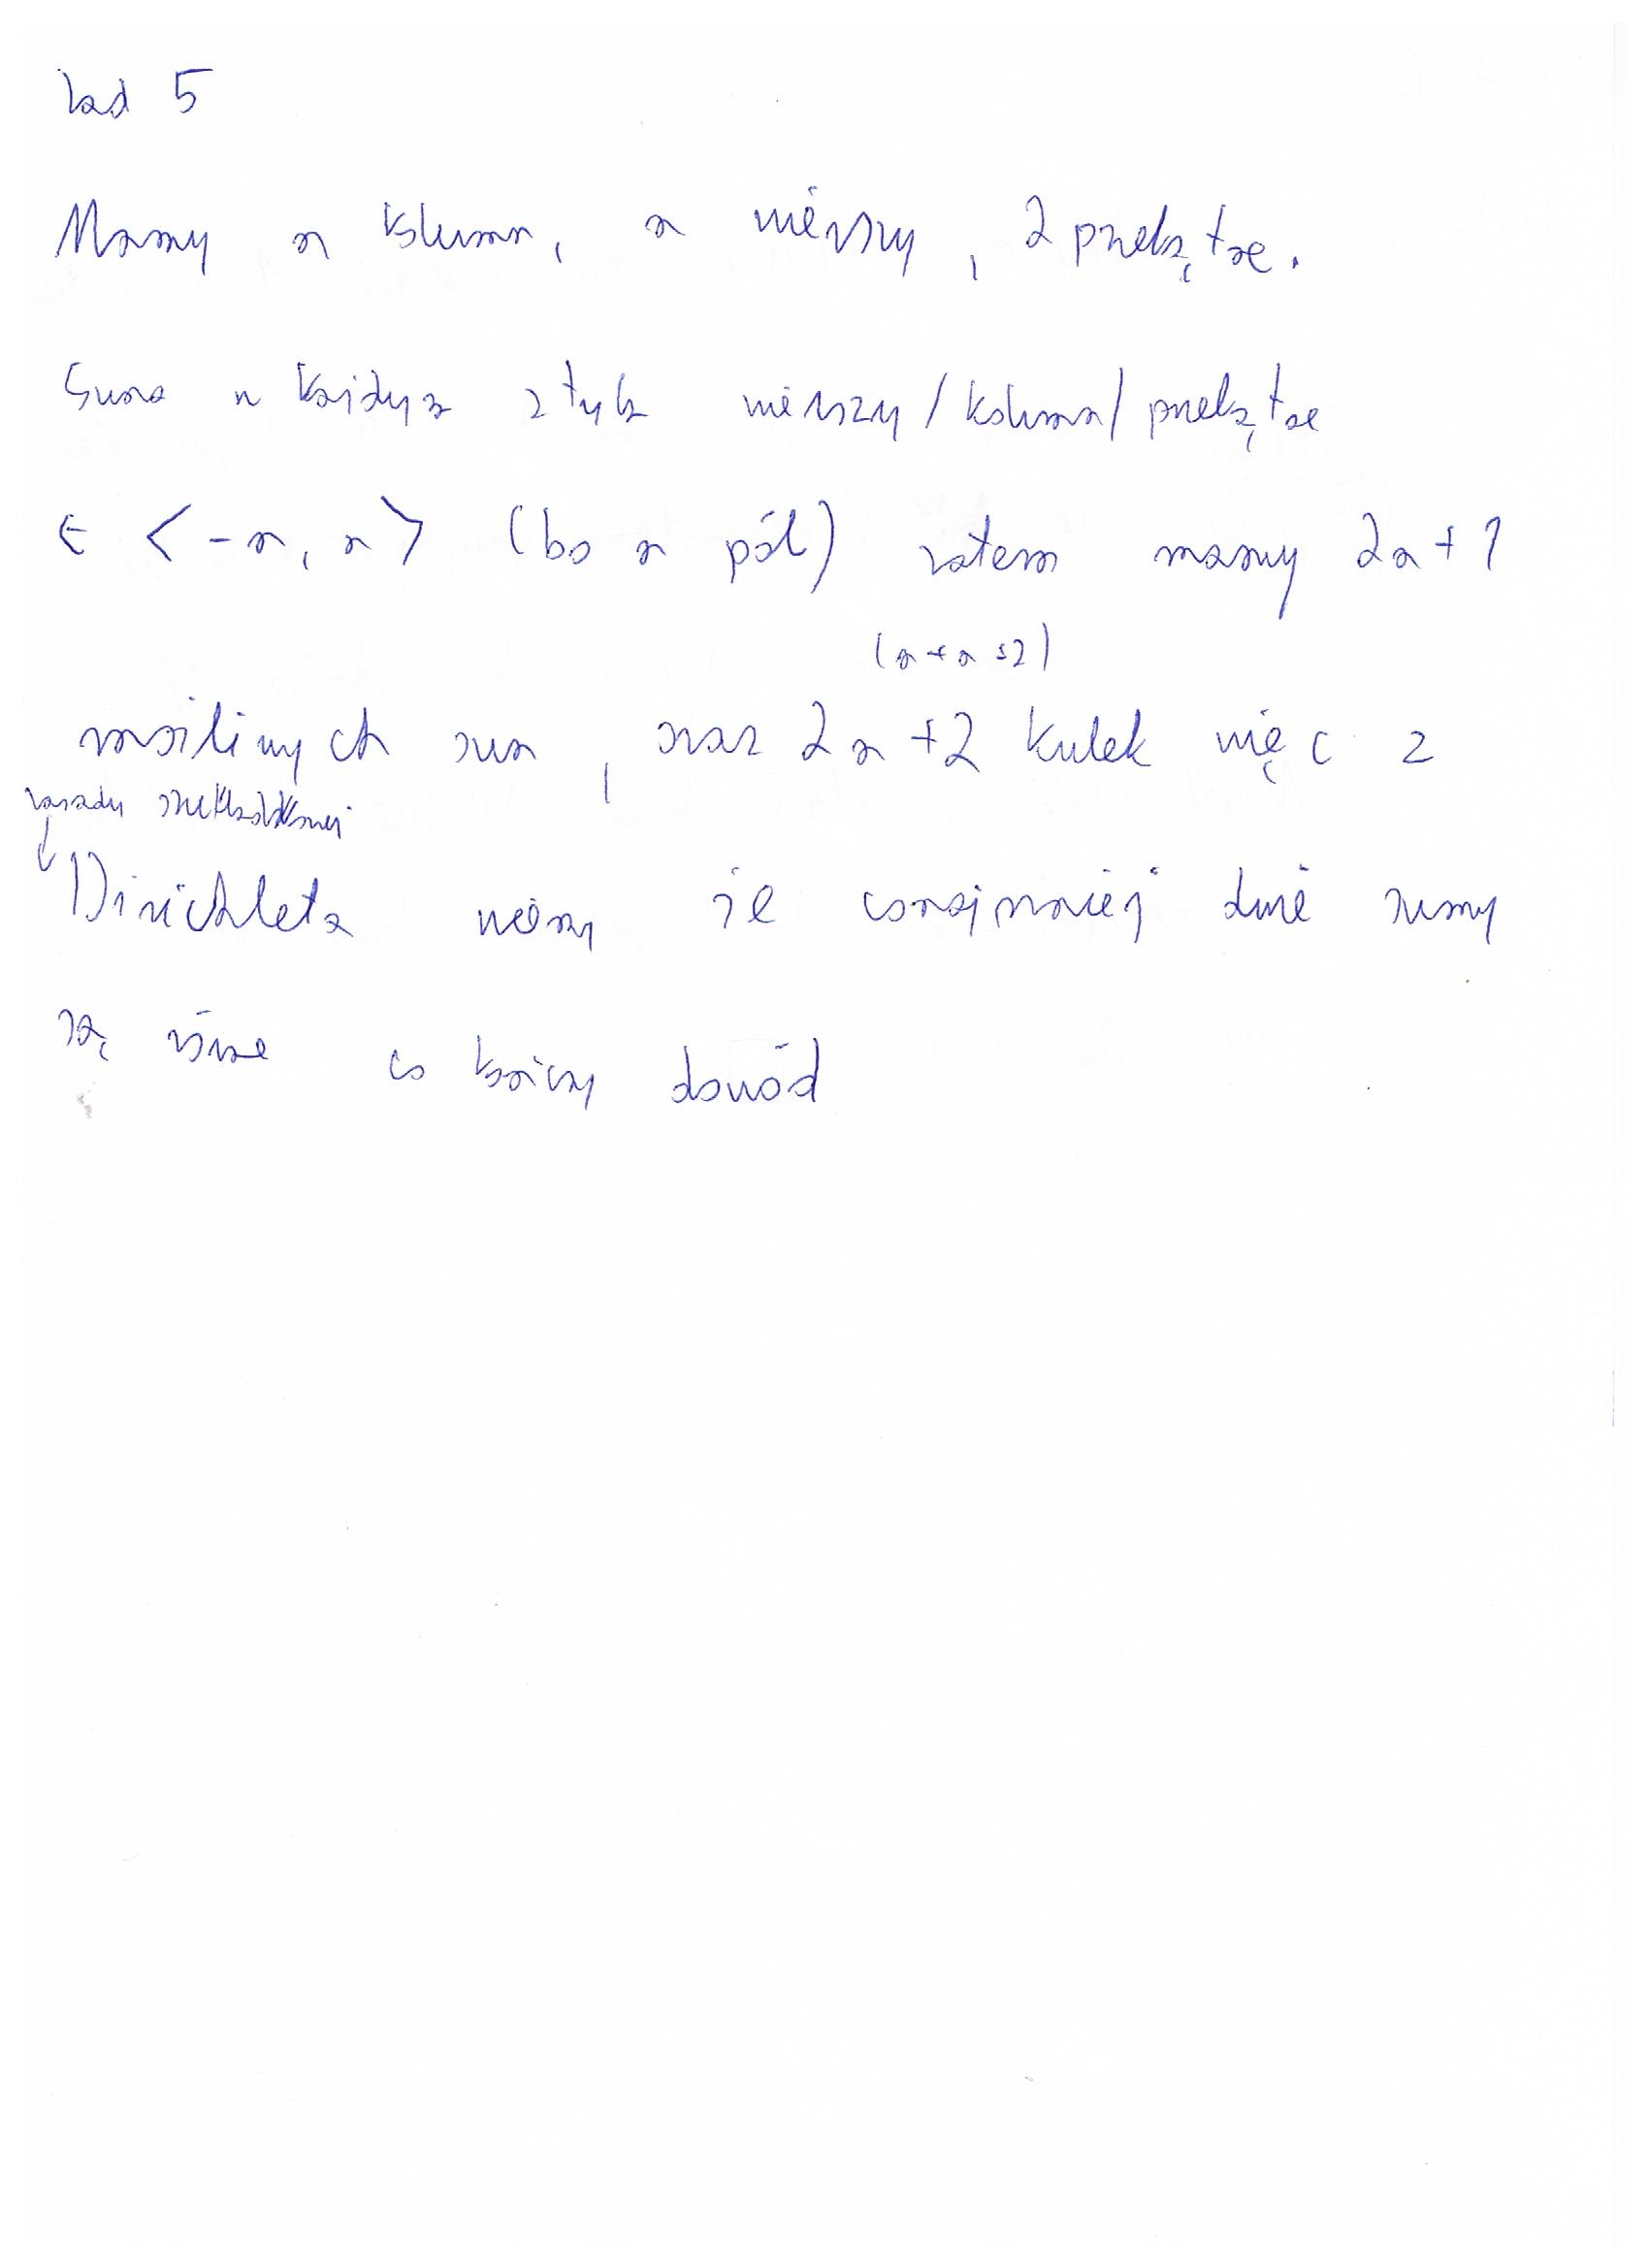 Zad 5
Mamy n kolumn, n wierszy, 2 przekątne.
Suma w każdym z tych wierszy/kolumn/przekątne
∈ <-n, n> (bo n pól) zatem mamy 2n+1
(n+n+2)
możliwych sum, oraz 2n+2 kulek więc z
zasady szufladkowej
Dirichleta wiemy że conajmniej dwie sumy
są równe co kończy dowód